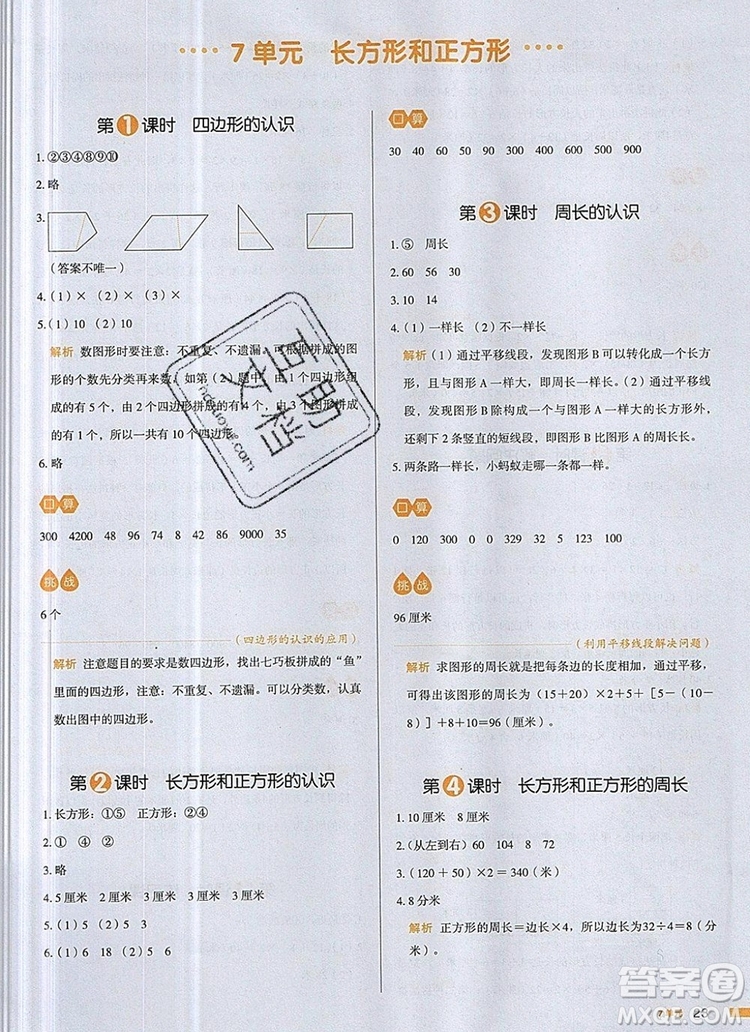 7 单元 长方形和正方形
第1课时 四边形的认识
1. ②③④⑧⑨⑩
2. 略
3.
（答案不唯一）
4.（1）×（2）×（3）×
5.（1）10（2）10
解析 数图形时要注意：不重复、不遗漏。可根据拼成的图形
的个数先分类再来数。如第（2）题中，由 1 个四边形组成
的有 5 个，由 2 个四边形拼成的有 4 个，由 3 个图形拼成
的有 1 个，所以一共有 10 个四边形。
6. 略
口算
300 4200 48 96 74 8 42 86 9000 35
挑战
6 个
（四边形的认识的应用）
解析 注意题目的要求是数四边形，找出七巧板拼成的“鱼”
里面的四边形。注意：不重复、不遗漏。可以分类数，认真
数出图中的四边形。
第2课时 长方形和正方形的认识
1. 长方形：①⑤ 正方形：②④
2. ① ④ ②
3. 略
4. 5 厘米 2 厘米 3 厘米 3 厘米
5.（1）5（2）7
6.（1）6 18（2）15 5 6
口算
30 40 60 50 90 300 400 600 500 900
第3课时 周长的认识
1. ⑤ 周长
2. 60 56 30
3. 10 14
4.（1）一样长（2）不一样长
解析（1）通过平移线段，发现图形 B 可以转化成一个长方
形，且与图形 A 一样大，即周长一样长。（2）通过平移线
段，发现图形 B 除构成一个与图形 A 一样大的长方形外，
还剩下 2 条竖直的短线段，即图形 B 比图形 A 的周长长。
5. 两条路一样长，小蚂蚁走哪一条都是一样的。
口算
0 120 300 0 0 329 32 5 123 100
挑战
96 厘米
（利用平移线段解决问题）
解析 求图形的周长就是把每条边的长度相加，通过平移，
可得出该图形的周长为（15＋20）×2＋5＋［5－（10－
8）］＋8＋10＝96（厘米）。
第4课时 长方形和正方形的周长
1. 10 厘米 8 厘米
2.（从左到右）60 104 8 72
3.（120＋50）×2＝340（米）
4. 8 分米
解析 正方形的周长＝边长×4，所以边长为32÷4＝8（分
米）。
百助文档
答案圈
MXQE.COM